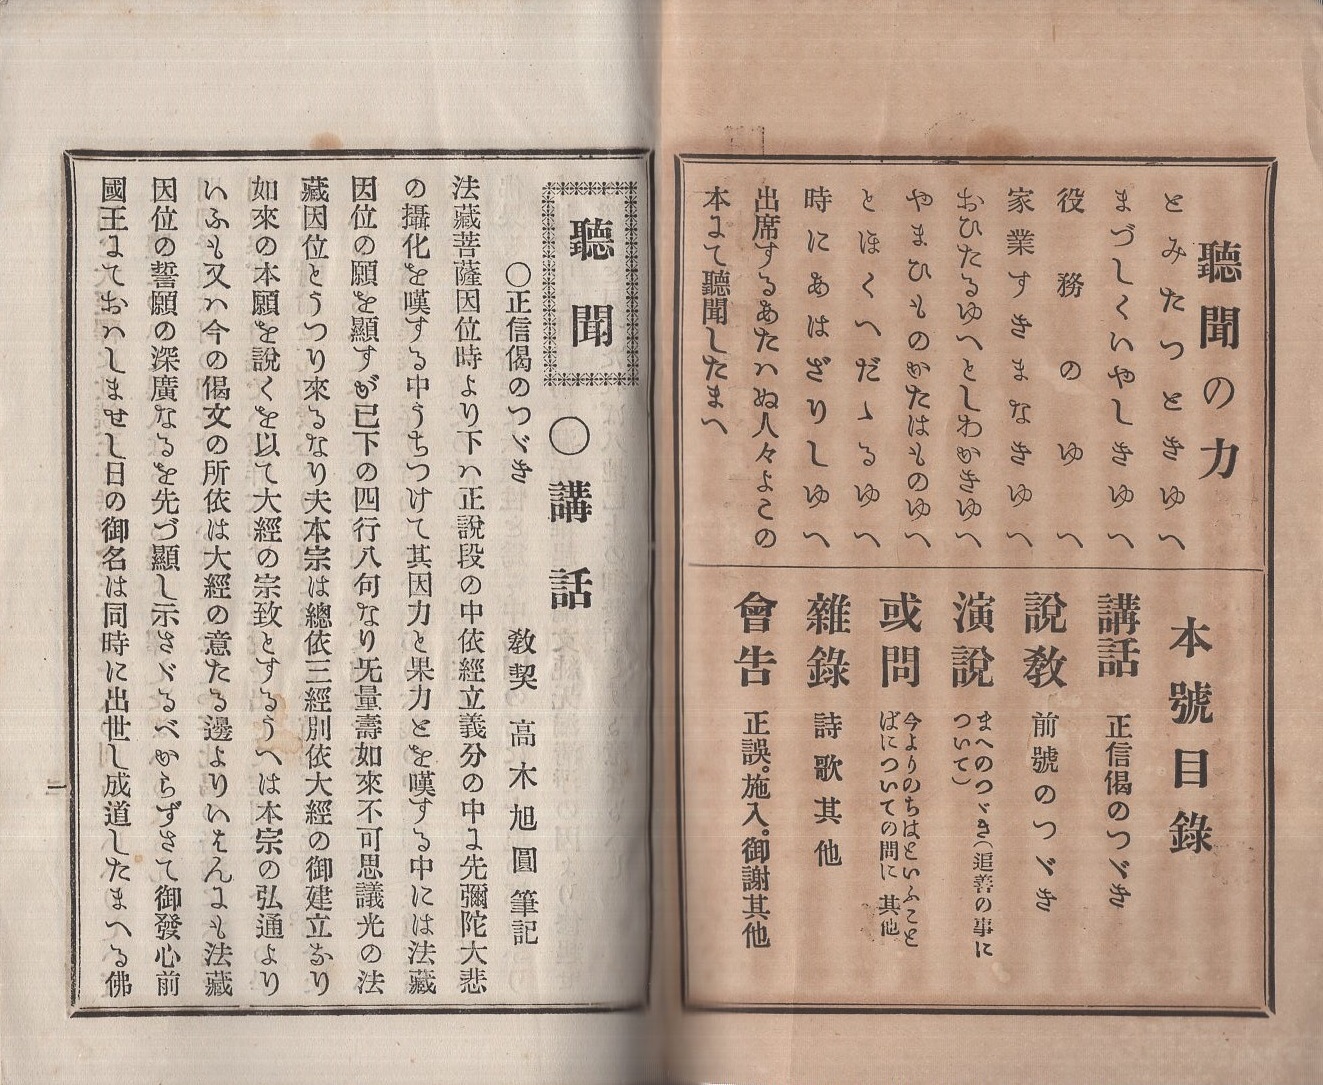 聽聞の力
とみたつときゆへ
まづしくいやしきゆへ
役務のゆへ
家業すきまなきゆへ
おひたるゆへとしわかきゆへ
やまひものかたはものゆへ
とほくへだゝるゆへ
時にあはざりしゆへ
出席するあたハぬ人々よこの
本にて聽聞したまへ
本號目錄
講話 正信偈のつゞき
說敎 前號のつゞき
演說 まへのつゞき(追善の事に
ついて)
或問 今よりのちはといふこと
ばについての問に 其他
雜錄 詩歌其他
會告 正誤。施入。御謝其他
聽聞 〇講話
〇正信偈のつゞき 敎契 高木旭圓筆記
法藏菩薩因位時より下ハ正說段の中依經立義分の中に先彌陀大悲
の攝化を嘆する中うちつけて其因力と果力とを嘆する中には法藏
因位の願を顯すが已下の四行八句なり旡量壽如來不可思議光の法
藏因位とうつり來るなり夫本宗は總依三經別依大經の御建立なり
如來の本願を說くを以て大經の宗致とするうへは本宗の弘通より
いふも又ハ今の偈文の所依は大經の意たる邊よりいはんにも法藏
因位の誓願の深廣なるを先づ顯し示さゞるべからずさて御發心前
國王にておハしませし日の御名は同時に出世し成道したまへる佛
一